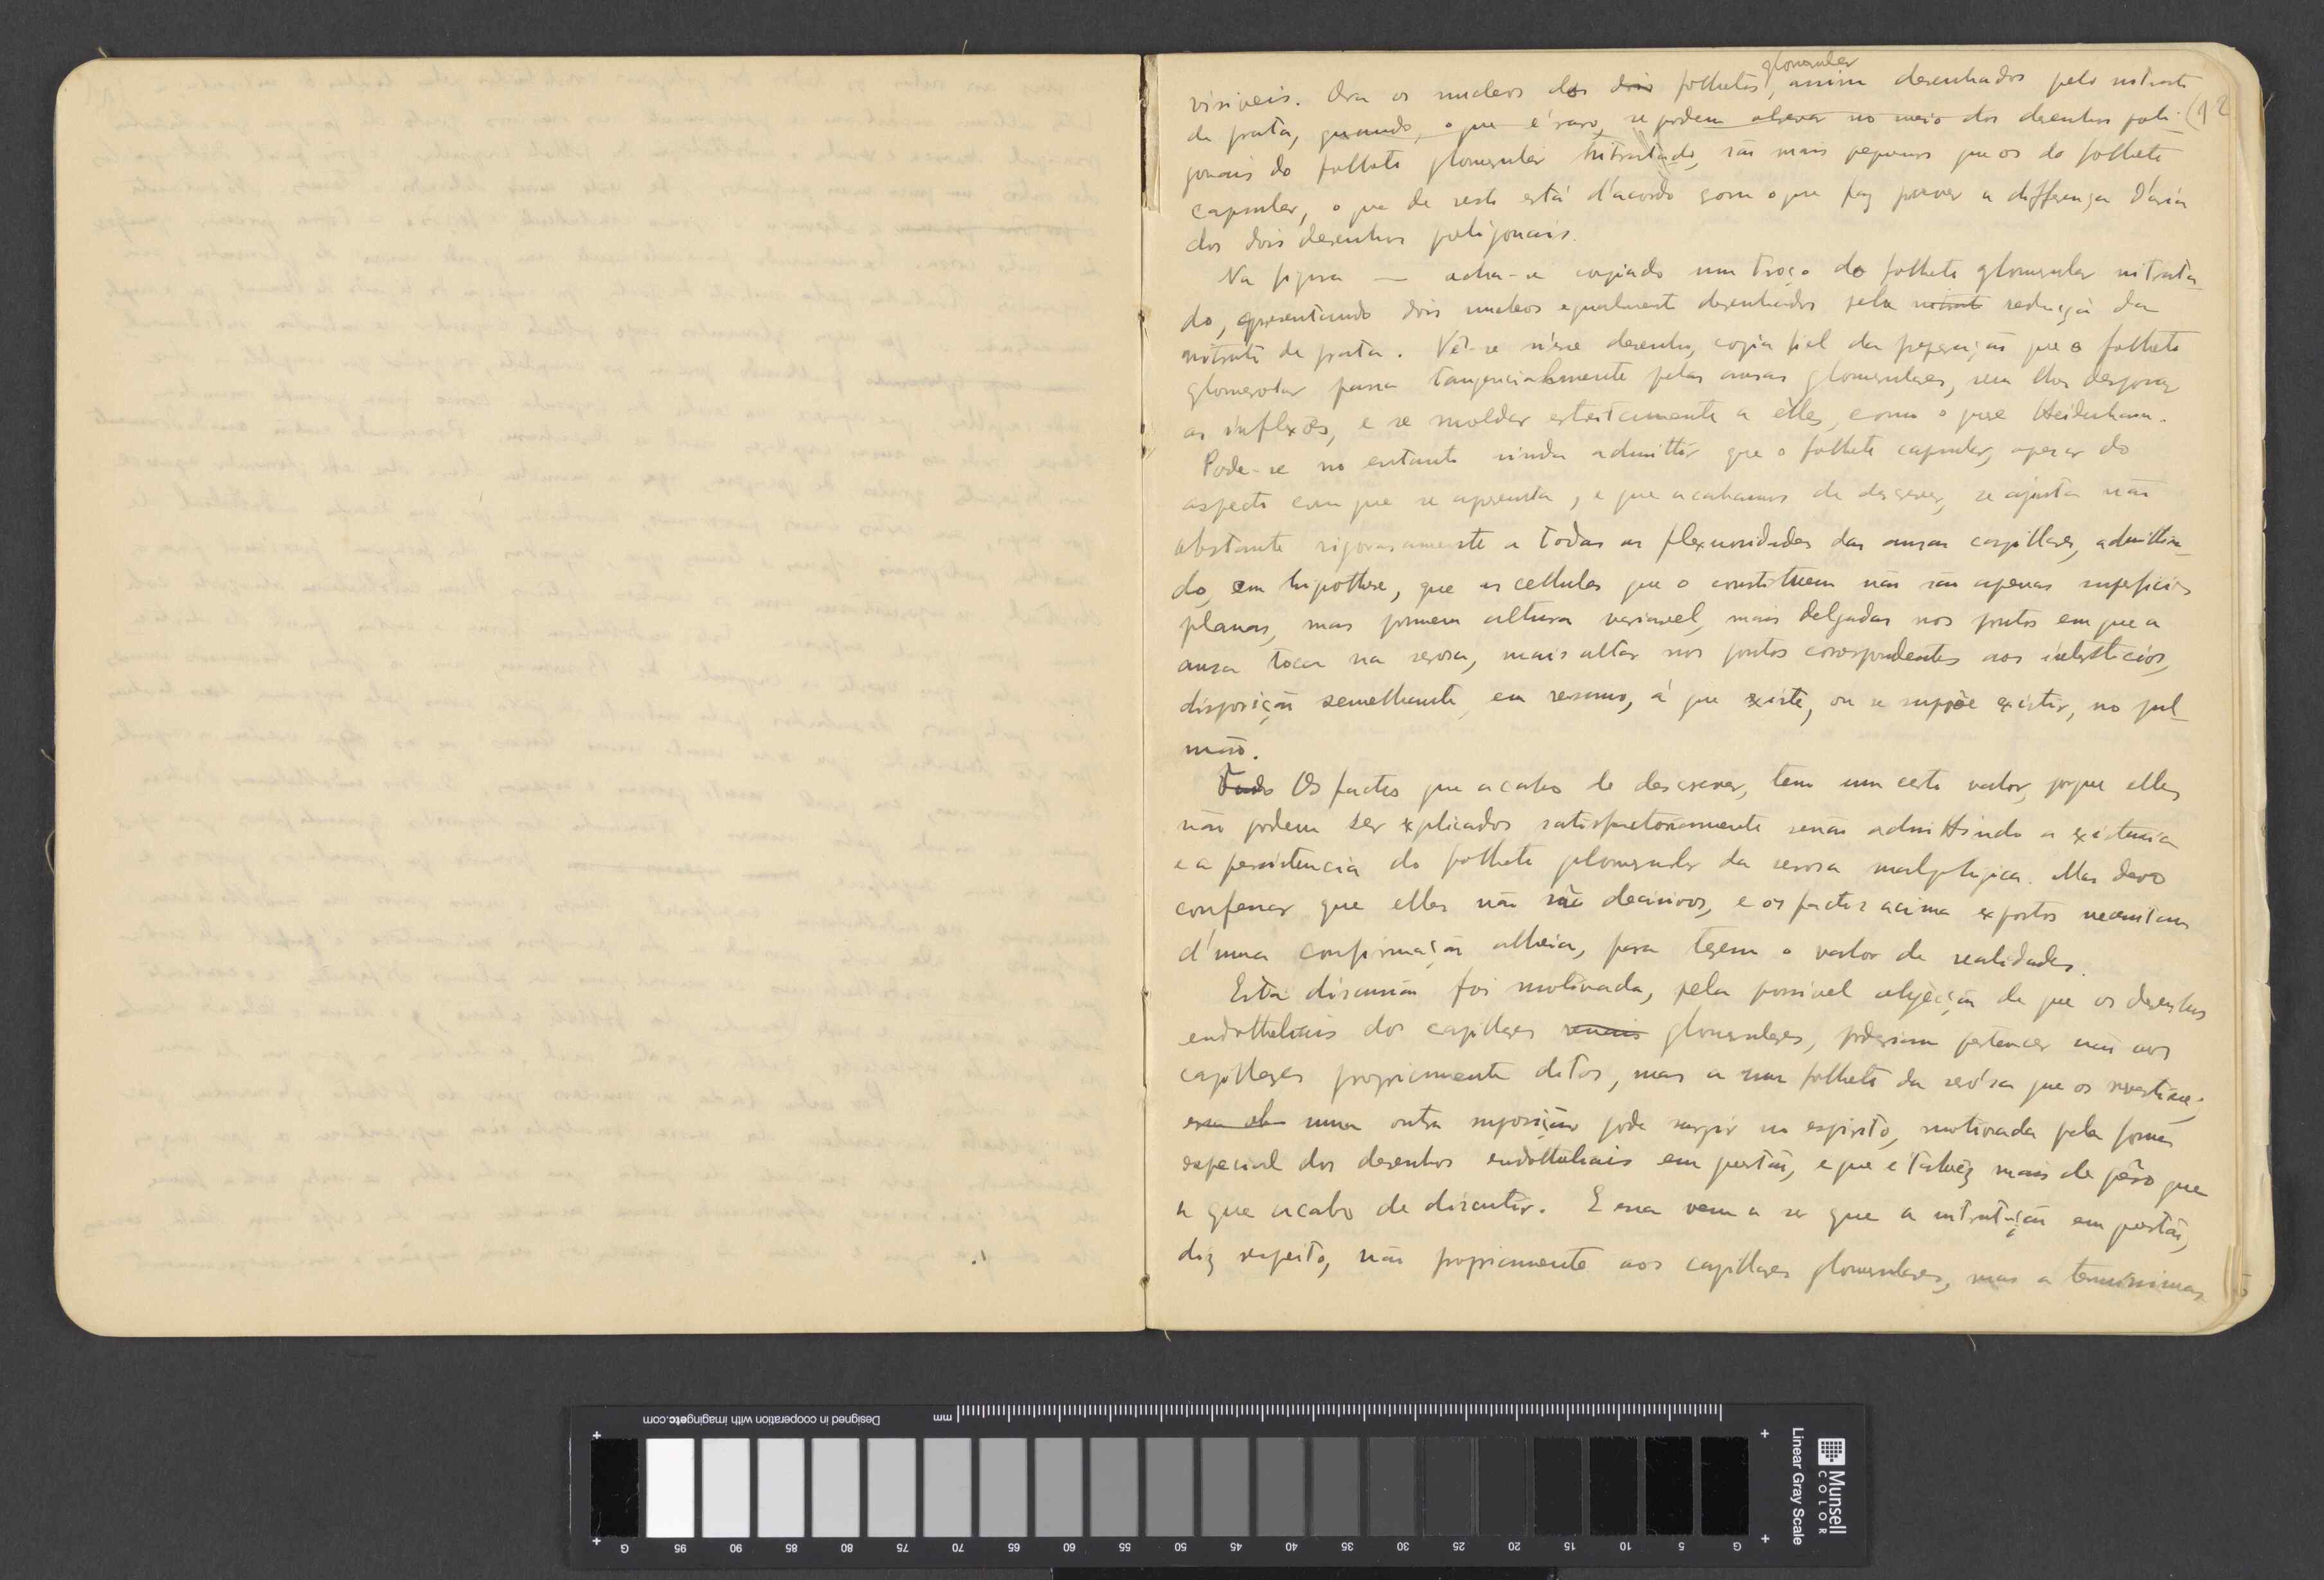 glomerular
visiveis. Ora os nucleos dos dois folhetos, assim desenhados pelo nitrato
(12
de prata, quando, o que é raro, se podem observar no meio dos desenhos poli-
gonais do folheto glomerular nitratado, são mais pequenos que os do folheto
capsular, o que de resto está d'acordo com o que faz prever a differença d'aria
dos dois desenhos poligonais.
Na figura — acha-se copiado um troço do folheto glomerular nitrata-
do, apresentando dois nucleos egualmente desenhados pela nitrato redução da
nitrato de prata. Vê-se n'esse desenho, copia fiel da preparação que o folheto
glomerular passa tangencialmente pelas ansas glomerulares, sem lhes desposar
as inflexões, e se moldar estreitamente a elles, como o quer Heidenhain.
Pode-se no entanto ainda admittir que o folheto capsular, apesar do
aspecto com que se apresenta, e que acabamos de descrever, se ajusta não
obstante rigorosamente a todas as flexuosidades das ansas capillares, admittin-
do, em hipothese, que as cellulas que o constituem não são apenas superficies
planas, mas possuem altura variavel, mais delgadas nos pontos em que a
ansa toca na serosa, mais altas nos pontos correspondentes aos intersticios,
disposição semelhante, em resumo, á que existe, ou se suppõe existir, no pul-
mão.
Todos Os factos que acabo de descrever, tem um certo valor, porque elles
não podem ser explicados satisfactoriamente senão admittindo a existencia
e a persistencia do folheto glomerular da serosa malpighica. Mas devo
confessar que elles não são decisivos, e os factos acima expostos necessitam
d'uma confirmação alheia, para terem o valor de realidades.
Esta discussão foi motivada, pela possivel objecção de que os desenhos
endotheliais dos capillares renais glomerulares, poderiam pertencer não aos
capillares propriamente ditos, mas a um folheto da serósa que os revestisse;
uma outra suposição pode surgir no espirito, motivada pela forma
especial dos desenhos endotheliais em questão, e que é talvez mais de pêso que
a que acabo de discutir. E essa vem a ser que a nitratação em questão,
diz respeito, não propriamente aos capillares glomerulares, mas a tenuissimas
Designed in cooperation with imagingetc.com
mm
G 95 90 85 80 75 70 65 60 55 50 45 40 35 30 25 20 15 10 5 G
Linear Gray Scale
Munsell
COLOR